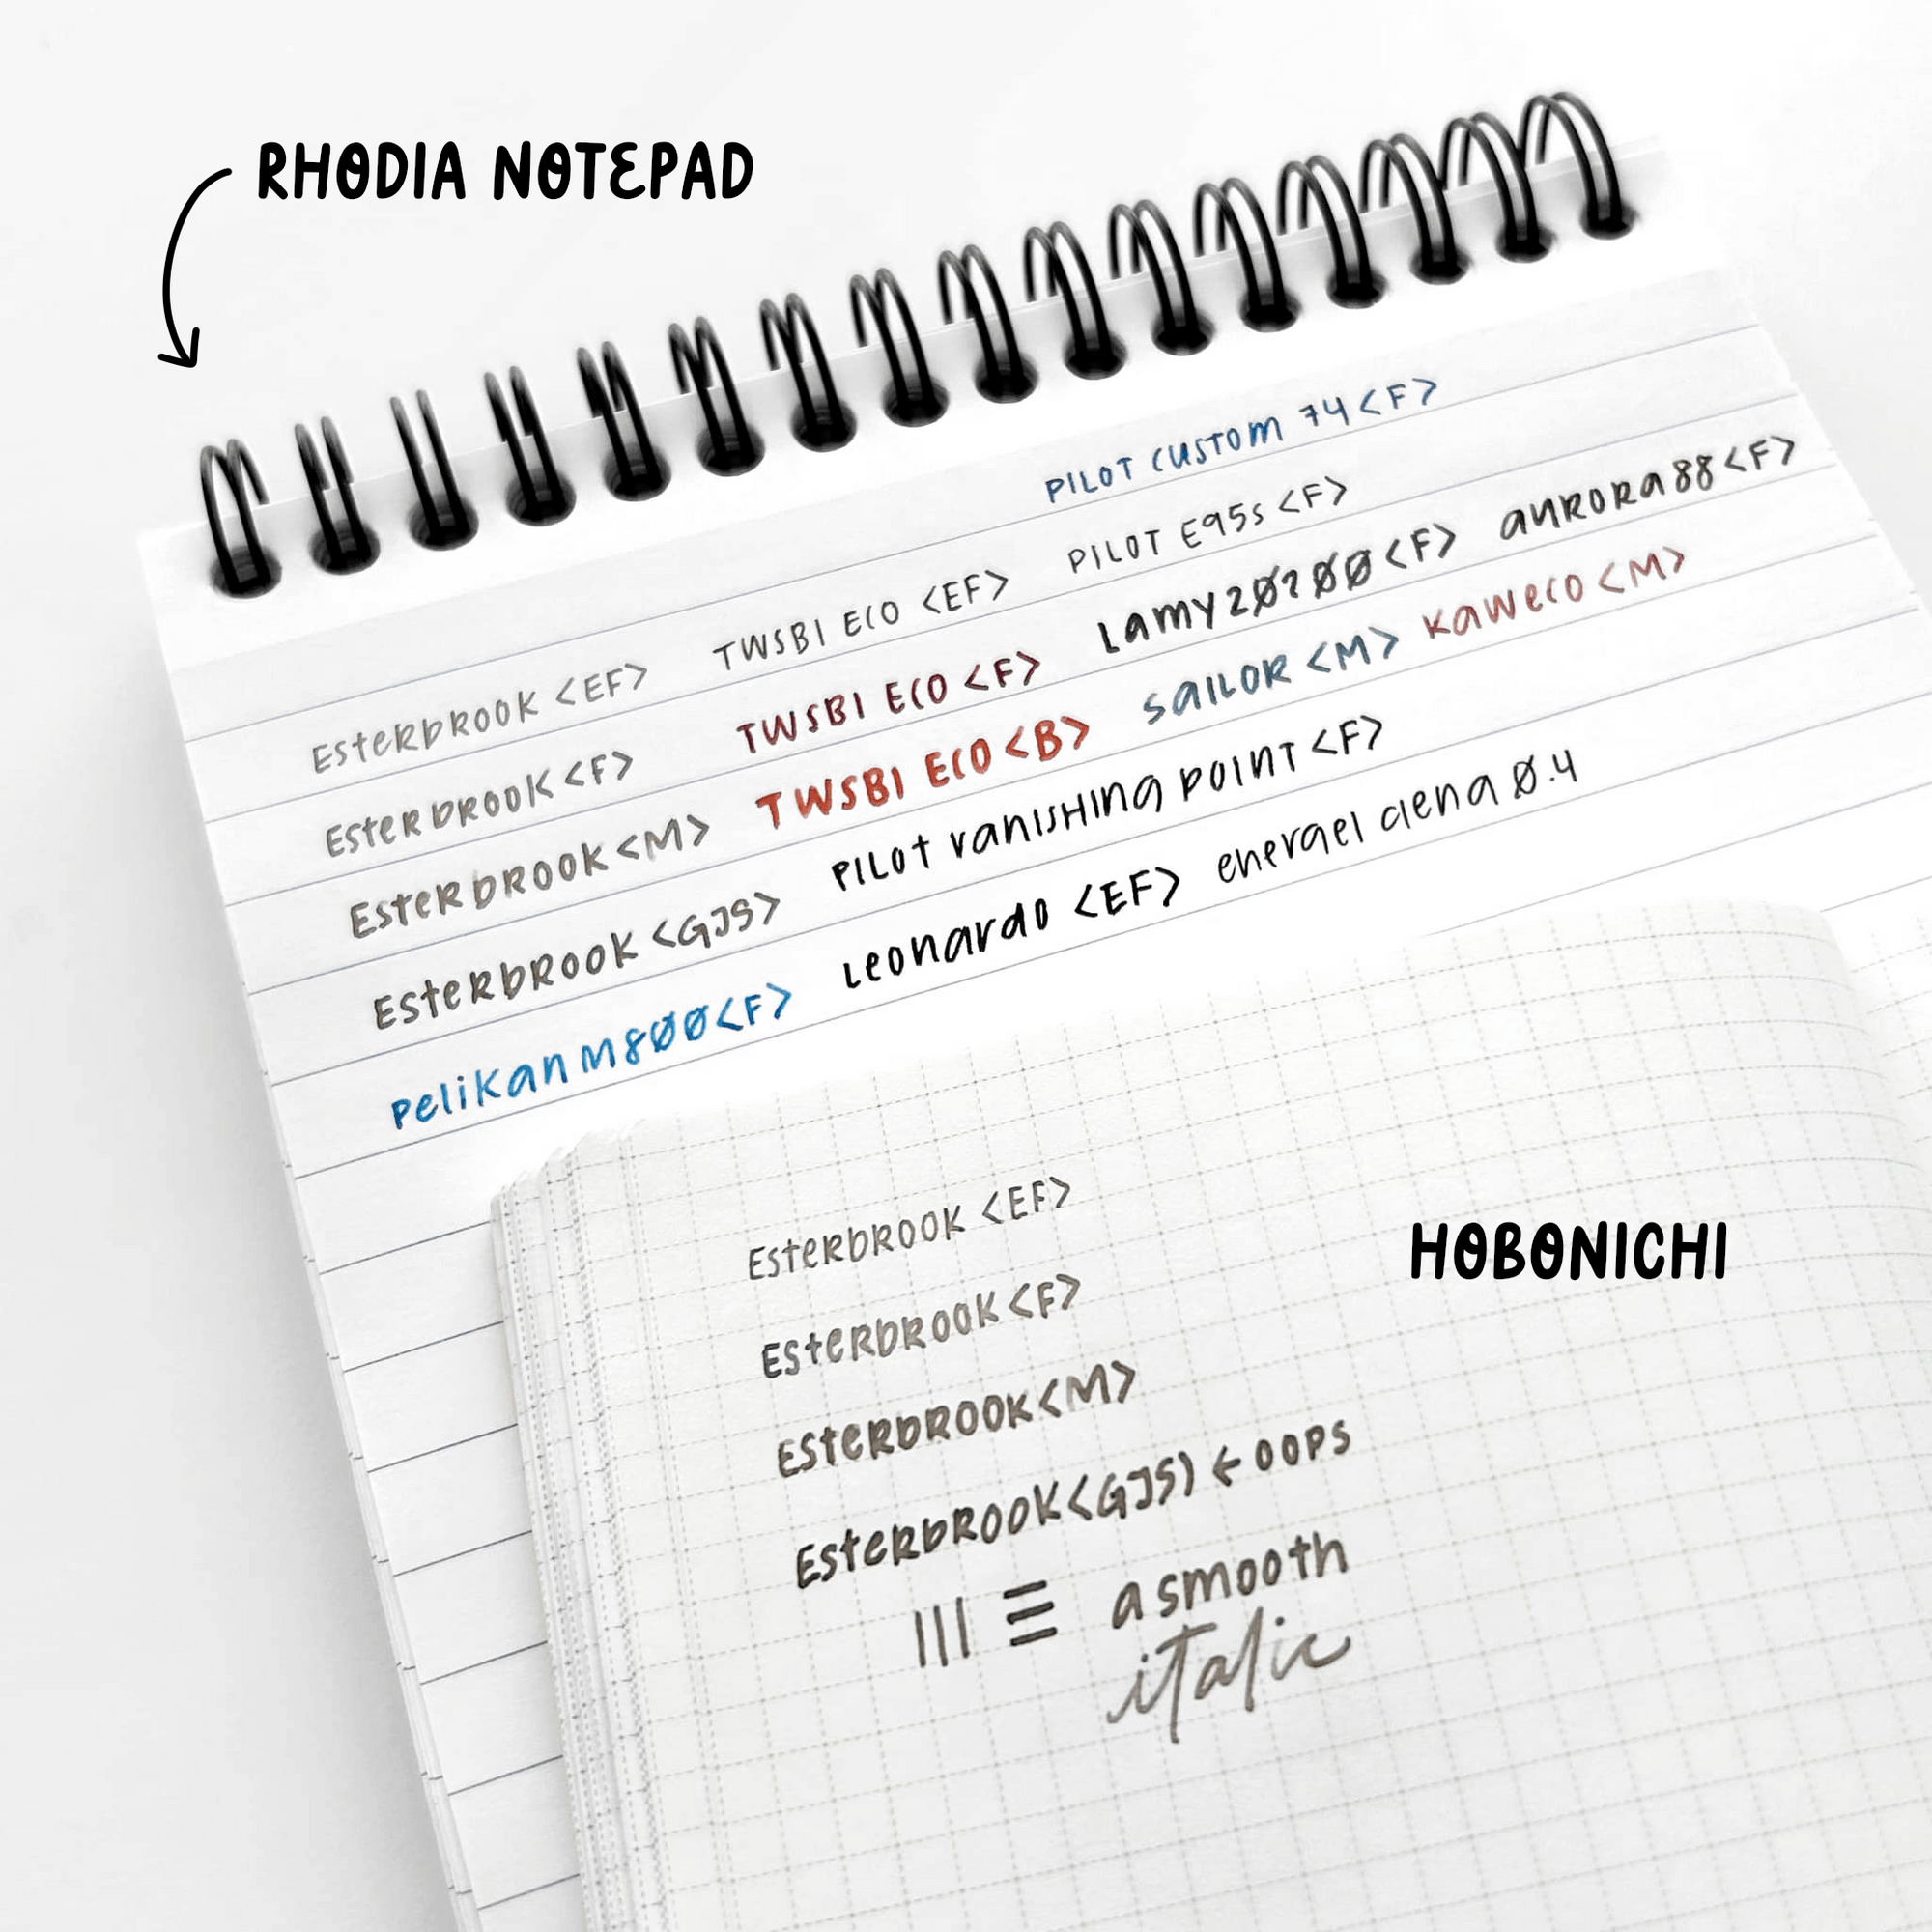 RHODIA NOTEPAD
PILOT CUSTOM 74 <F>
EsterbROOK <EF> TWSBI ECO <EF> PILOT E95s <F>
EsterbROOK <F> TWSBI ECO <F> Lamy 20200 <F> auRORa 88 <F>
EsterbROOK <M> TWSBI ECO <B> SaILOR <M> Kaweco <M>
EsterbROOK <GJS> PILOt vanisHing point <F>
Pelikan M800 <F> Leonardo <EF> energel clena 0.4
HOBONICHI
EsterbROOK <EF>
EsterbROOK <F>
EsterbROOK <M>
EsterbROOK <GJS) ← OOPS
a smooth
italic